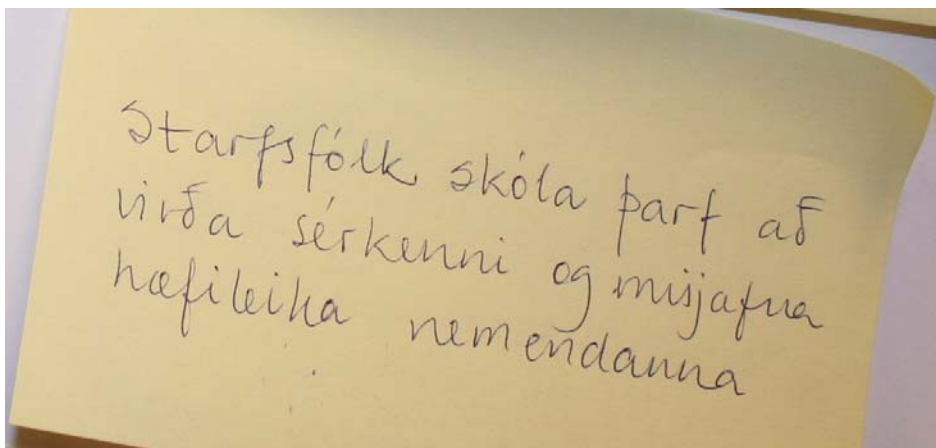 Starfsfólk skóla þarf að
virða sérkenni og misjafna
hæfileika nemendanna